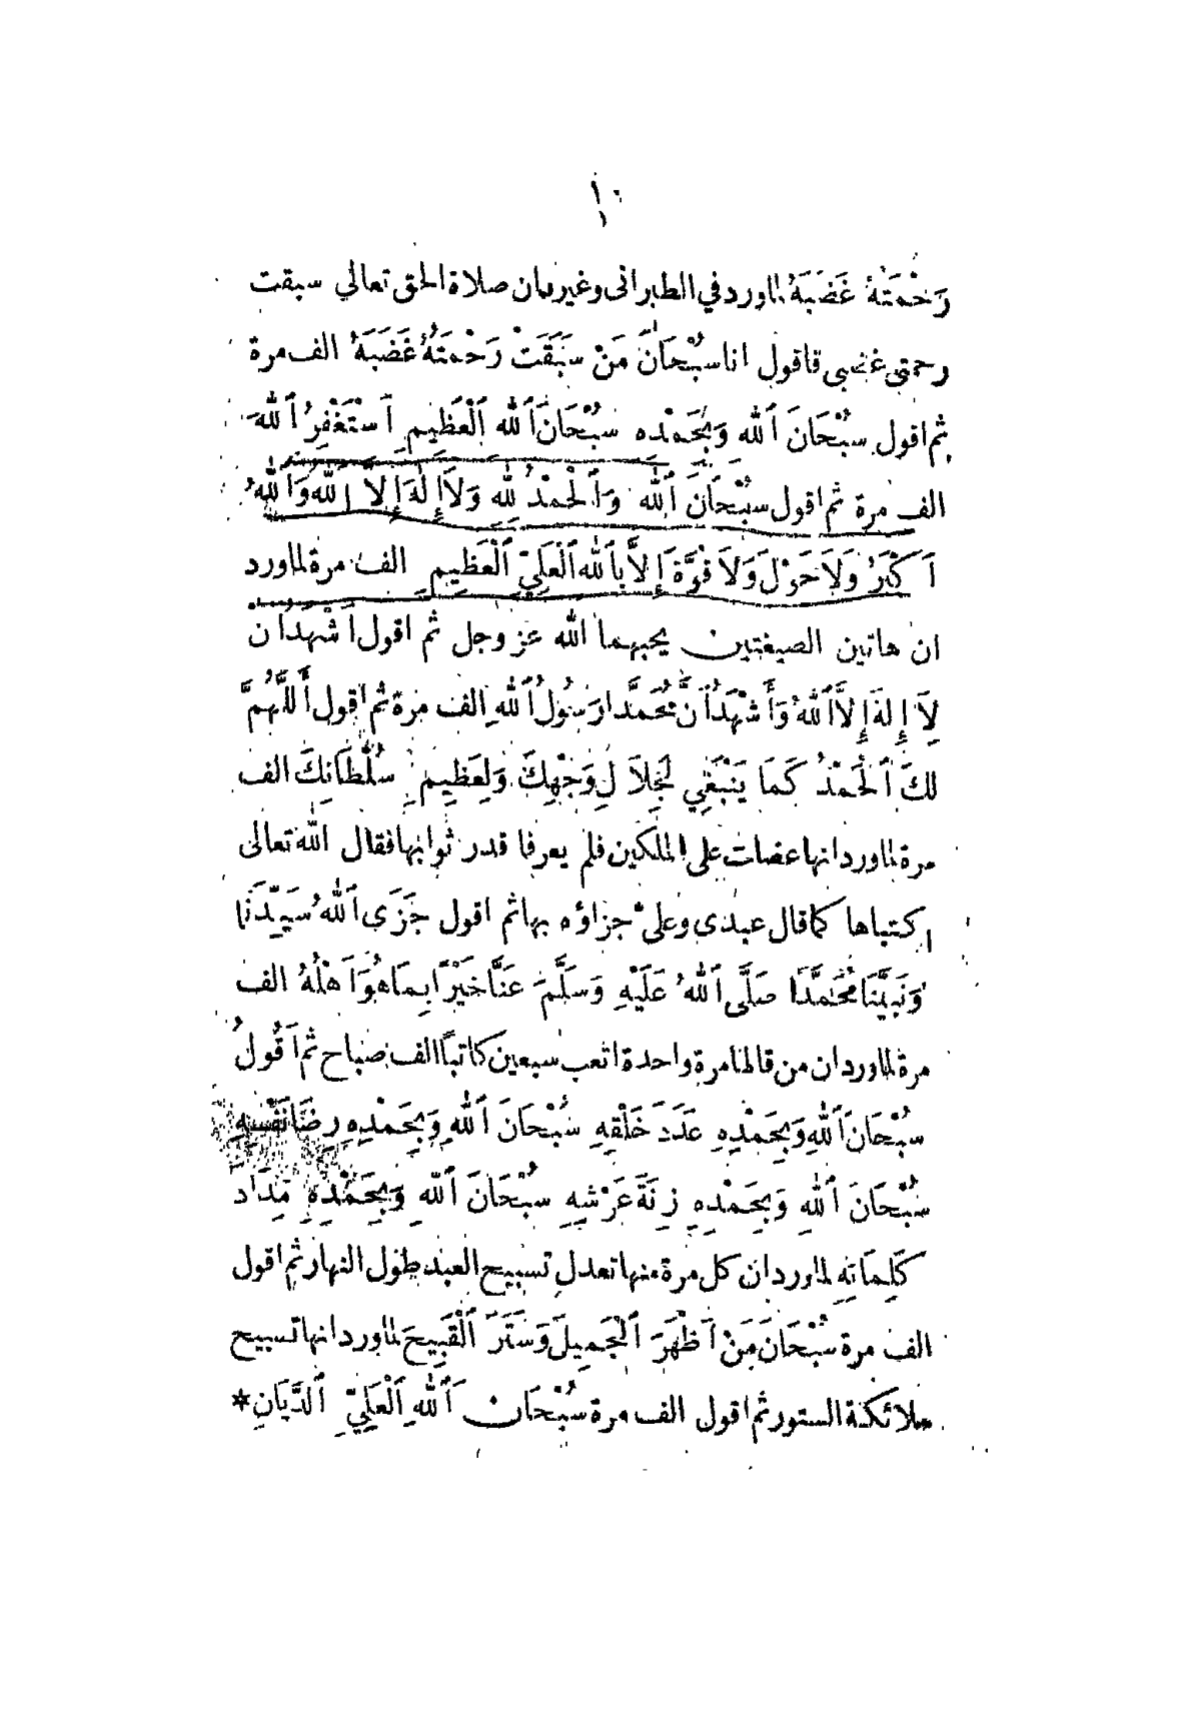 ١٠
رَحْمَتُهُ غَضَبَهُ لما ورد في الطبرانى وغيره ان صلاة الحق تعالى سبقت
رحمتى غضبى فاقول انا سُبْحَانَ مَنْ سَبَقَتْ رَحْمَتُهُ غَضَبَهُ الف مرة
ثم اقول سُبْحَانَ ٱللهِ وَبِحَمْدِهِ سُبْحَانَ ٱللهِ ٱلْعَظِيمِ اَسْتَغْفِرُ ٱللهَ
الف مرة ثم اقول سُبْحَانَ ٱللهِ وَٱلْحَمْدُ لِلهِ وَلَا إِلٰهَ إِلَّا ٱللهُ وَٱللهُ
اَكْبَرُ وَلَا حَوْلَ وَلَا قُوَّةَ إِلَّا بِٱللهِ ٱلْعَلِيِّ ٱلْعَظِيمِ الف مرة لما ورد
ان هاتين الصيغتين يحبهما الله عز وجل ثم اقول اَشْهَدُ ان
لَا إِلهَ إِلَّا ٱللهُ وَأَشْهَدُ اَنَّ مُحَمَّدا رَسُولُ ٱللهِ الف مرة ثم اقول أَللّٰهُمَّ
لَكَ ٱلْحَمْدُ كَمَا يَنْبَغِي لِجَلَالِ وَجْهِكَ وَلِعَظِيمِ سُلْطَانِكَ الف
مرة لما ورد انها عضلت على الملكين فلم يعرفا قدر ثوابها فقال الله تعالى
اكتباها كما قال عبدى وعلىّ جزاؤه بها ثم اقول جَزَى ٱللهُ سَيِّدَنَا
وَنَبِيَّنَا مُحَمَّدًا صَلَّى ٱللهُ عَلَيْهِ وَسَلَّمَ عَنَّا خَيْرًا بِمَا هُوَ اَهْلُهُ الف
مرة لما ورد ان من قالها مرة واحدة اتعب سبعين كاتبًا الف صباح ثم اَقُولُ
سُبْحَانَ ٱللهِ وَبِحَمْدِهِ عَدَدَ خَلْقِهِ سُبْحَانَ ٱللهِ وَبِحَمْدِهِ رِضَا نَفْسِهِ
سُبْحَانَ ٱللهِ وَبِحَمْدِهِ زِنَةَ عَرْشِهِ سُبْحَانَ ٱللهِ وَبِحَمْدِهِ مِدَادَ
كَلِمَاتِهِ لما ورد ان كل مرة منها تعدل تسبيح العبد طول النهار ثم اقول
الف مرة سُبْحَانَ مَنْ اَظْهَرَ ٱلْجَمِيلَ وَسَتَرَ ٱلْقَبِيحَ لما ورد انها تسبيح
ملائكة الستور ثم اقول الف مرة سُبْحَان ٱللهِ ٱلْعَلِيِّ ٱلدَّيَانِ*